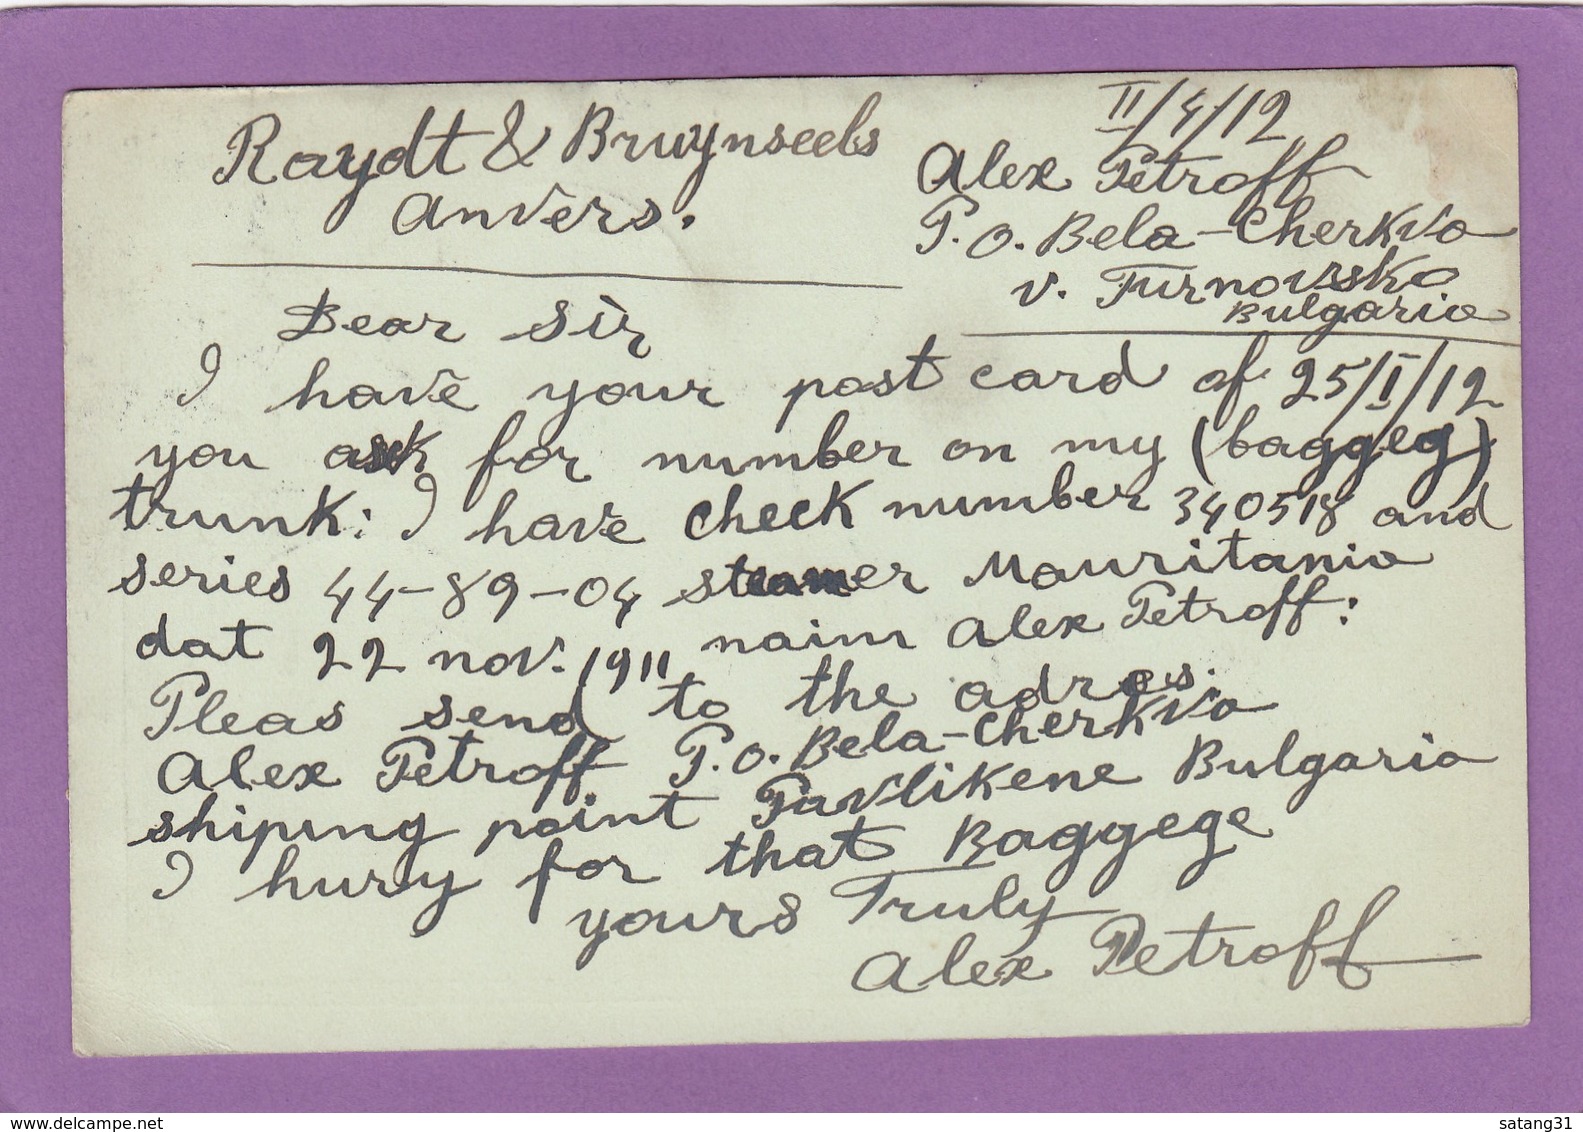 Raydt & Bruynseels
Anvers.
II/4/12
Alex Petroff
P.O. Bela-Cherkva
v. Turnovsko
Bulgaria
Dear Sir
I have your post card of 25/I/12
you ask for number on my (baggeg)
trunk: I have check number 340518 and
series 44-89-04 steamer Mauritania
dat 22 nov. 1911 naim Alex Petroff:
Pleas send to the adres.
Alex Petroff P.O. Bela-Cherkva
shiping point Pavlikene Bulgaria
I hury for that Baggege
yours Truly
Alex Petroff
satang31